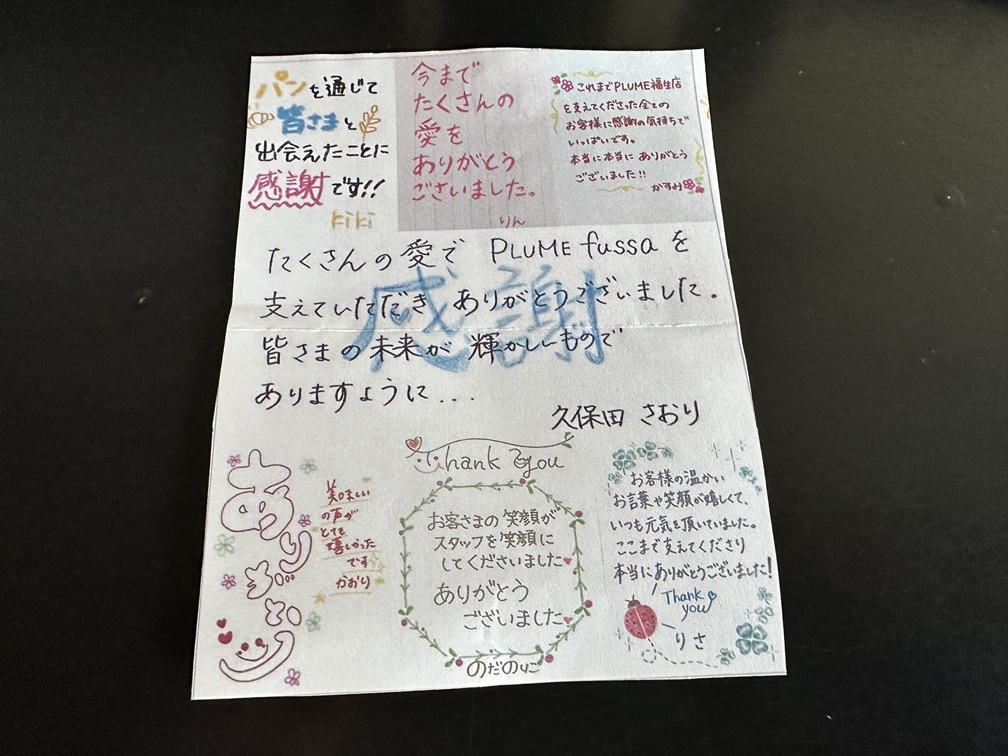 パンを通じて
皆さまと
出会えたことに
感謝です!!
kiki
今まで
たくさんの
愛を
ありがとう
ございました。
りん
これまでPLUME福生店
を支えてくださった全ての
お客様に感謝の気持ちで
いっぱいです。
本当に本当に ありがとう
ございました!!
かすみ
感謝
たくさんの愛で PLUME fussaを
支えていただき ありがとうございました。
皆さまの未来が 輝かしいもので
ありますように...
久保田 さおり
ありがとう
美味しい
の声が
とても
嬉しかった
です
かおり
Thank you
お客さまの笑顔が
スタッフを笑顔に
してくださいました
ありがとう
ございました
のだのりこ
お客様の温かい
お言葉や笑顔が嬉しくて、
いつも元気を頂いていました。
ここまで支えてくださり
本当にありがとうございました!
Thank
you
りさ